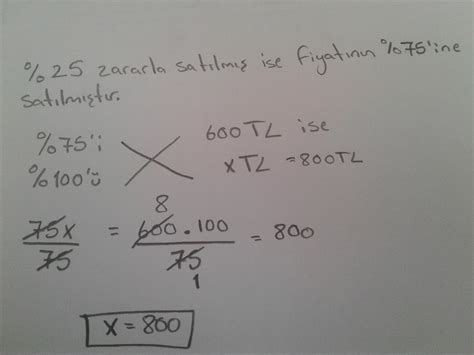 %25 zararla satılmış ise fiyatının %75'ine
satılmıştır.
%75'i 600TL ise
%100'ü xTL =800TL
8
75x = 600.100 = 800
75 75
1
x = 800